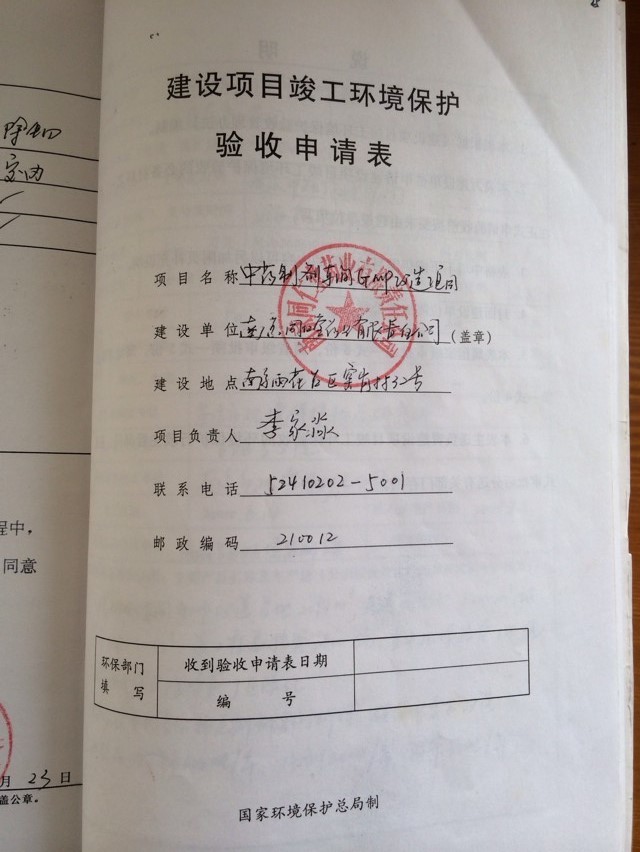 除外
建设项目竣工环境保护
验收申请表
项目名称 中药制剂车间GMP改造项目
建设单位 南京同仁堂药业有限责任公司 (盖章)
建设地点 南京雨花台区 32号
项目负责人 李家淼
联系电话 52410202-5001
邮政编码 210012
程中，
同意
环保部门
填 写
收到验收申请表日期
编 号
月 23 日
盖公章。
国家环境保护总局制